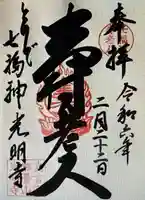 奉拝
令和六年
二月二十二日
寿老人
七福神光明寺